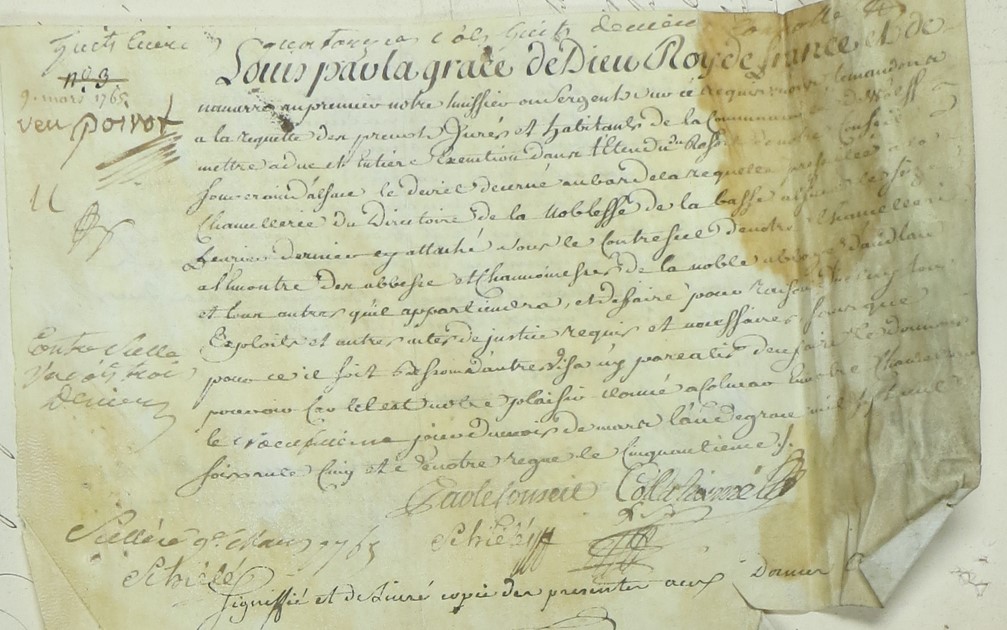 huit livres quatorze sols huit deniers
Louis par la grace de Dieu Roy de france et de
n.º 3
9. mars 1765
veu poirot
navarre au premier notre huissier ou sergent sur ce requis nous te mandons
a la requette des prevost Jurés et habitants de la Commune de
mettre a due et entiere Execution dans l'étendue du Ressort de notre Conseil
souverain d'alsace le decret decerné au bas de la requette presentée a la
Chancellerie du Directoire de la Noblesse de la basse alsace le
fevrier dernier cy attaché sous le Contrescel de notre Chancellerie
allencontre des abbesse et Chanoinesses de la noble abbaye d'andlau
et tous autres qu'il appartiendra, et de faire pour raison de ce tous
Exploits et autres actes de justice requis et necessaires sans que
pour ce il soit besoin d'autres visa ny pareatis de ce faire te donnons
pouvoir Car tel est notre plaisir donné a Colmar en notre Chancellerie
le jour du mois de mars l'an de grace mil sept cent
soixante Cinq et de notre regne le Cinquantieme
Contre Scelle
trois
Deniers
Par le Conseil Collationné
Scellé ce 9e Mars 1765
Schielé
Schielé
Signiffié et delivré copie des presentes aux Dames